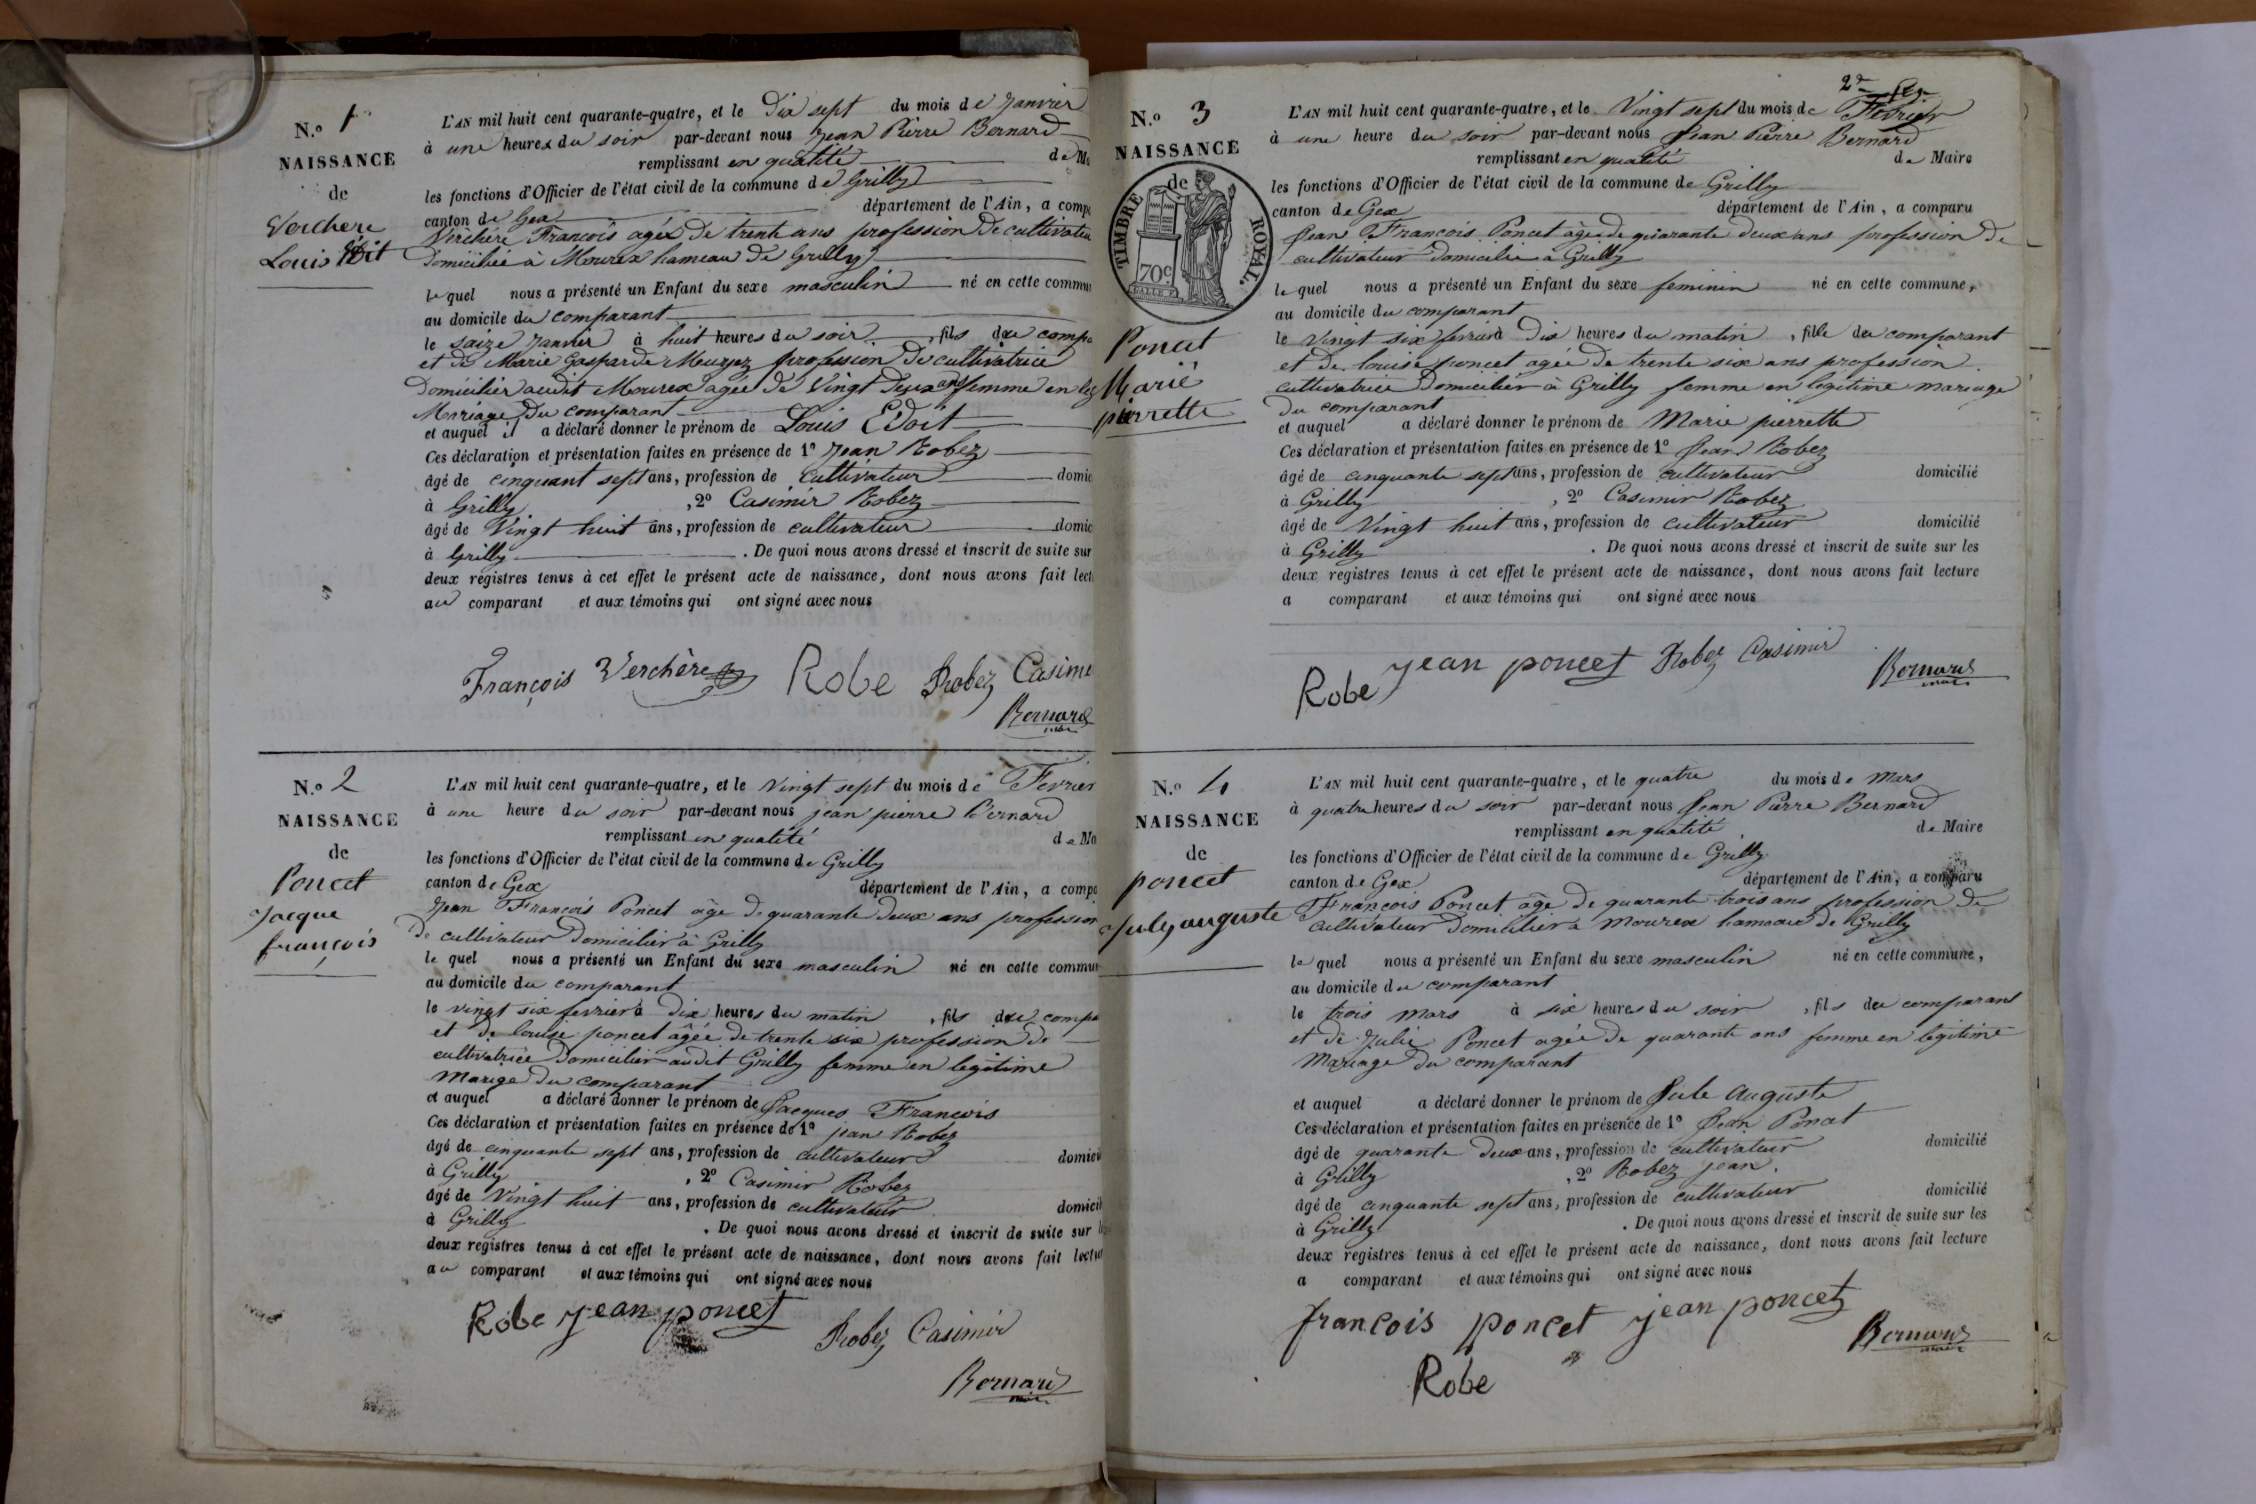 N.o 1
NAISSANCE
de
Verchère
Louis Edoit
L'AN mil huit cent quarante-quatre, et le Dix sept du mois de Janvier
à une heures du soir par-devant nous Jean Pierre Bernard
remplissant en qualité de Ma
les fonctions d'Officier de l'état civil de la commune de Grilly
canton de Gex département de l'Ain, a compa
Verchère François agée de trente ans profession De cultivateu
Domiciliée à Mourex hameau De Grilly
le quel nous a présenté un Enfant du sexe masculin né en cette commun
au domicile du comparant
le saize Janvier à huit heures du soir, fils du compa
et de Marie Gasparde profession De cultivatrice
Domicilier audit Mourex agée de Vingt Deux ans femme en leg
Mariage Du comparant
et auquel il a déclaré donner le prénom de Louis Edoit
Ces déclaration et présentation faites en présence de 1º Jean Robez
âgé de cinquant sept ans, profession de cultivateur domic
à Grilly, 2º Casimir Robez
âgé de Vingt huit ans, profession de cultivateur domic
à Grilly. De quoi nous avons dressé et inscrit de suite sur
deux registres tenus à cet effet le présent acte de naissance, dont nous avons fait lect
au comparant et aux témoins qui ont signé avec nous
François Verchère Robe Robez Casimi
Bernard
maire
N.o 2
NAISSANCE
de
Poncet
Jacque
françois
L'AN mil huit cent quarante-quatre, et le Vingt sept du mois de Fevrier
à une heure du soir par-devant nous jean pierre Bernard
remplissant en qualité de Ma
les fonctions d'Officier de l'état civil de la commune de Grilly
canton de Gex département de l'Ain, a compa
Jean François Poncet âge De quarante Deux ans profession
De cultivateur Domicilier à Grilly
le quel nous a présenté un Enfant du sexe masculin né en cette commun
au domicile du comparant
le vingt six fevrier à Dix heures du matin, fils du compa
et De louise poncet âgée de trente six profession De
cultivatrice Domicilier audit Grilly femme en legitime
Marige Du comparant
et auquel a déclaré donner le prénom de Jacques François
Ces déclaration et présentation faites en présence de 1º jean Robez
âgé de cinquante sept ans, profession de cultivateur domici
à Grilly, 2º Casimir Robez
âgé de Vingt huit ans, profession de cultivateur domicil
à Grilly. De quoi nous avons dressé et inscrit de suite sur
deux registres tenus à cet effet le présent acte de naissance, dont nous avons fait lectur
au comparant et aux témoins qui ont signé avec nous
Robe jean poncet
Robez Casimir
Bernard
maire
2me
N.o 3
NAISSANCE
de
TIMBRE ROYAL.
70c
Poncet
Marie
pierrette
L'AN mil huit cent quarante-quatre, et le Vingt sept du mois de Fevrier
à une heure du soir par-devant nous Jean Pierre Bernard
remplissant en qualité de Maire
les fonctions d'Officier de l'état civil de la commune de Grilly
canton de Gex département de l'Ain, a comparu
Jean François Poncet âgée de quarante deux ans profession De
cultivateur Domicilié à Grilly
le quel nous a présenté un Enfant du sexe feminin né en cette commune,
au domicile du comparant
le Vingt six fevrier à Dix heures du matin, fille du comparant
et De louise poncet agée De trente six ans profession
cultivatrice Domicilier à Grilly femme en legitime mariage
Du comparant
et auquel a déclaré donner le prénom de Marie pierrette
Ces déclaration et présentation faites en présence de 1º Jean Robez
âgé de cinquante sept ans, profession de cultivateur domicilié
à Grilly, 2º Casimir Robez
âgé de Vingt huit ans, profession de cultivateur domicilié
à Grilly. De quoi nous avons dressé et inscrit de suite sur les
deux registres tenus à cet effet le présent acte de naissance, dont nous avons fait lecture
a comparant et aux témoins qui ont signé avec nous
Robe jean poncet Robez Casimir
Bernard
maire
N.o 4
NAISSANCE
de
poncet
Jules auguste
L'AN mil huit cent quarante-quatre, et le quatre du mois de Mars
à quatre heures du soir par-devant nous Jean Pierre Bernard
remplissant en qualité de Maire
les fonctions d'Officier de l'état civil de la commune de Grilly
canton de Gex département de l'Ain, a comparu
François Poncet âge De quarante trois ans profession De
cultivateur Domicilier à Mourex hameau De Grilly
le quel nous a présenté un Enfant du sexe masculin né en cette commune,
au domicile du comparant
le trois Mars à six heures du soir, fils du comparant
et De Julie Poncet agée De quarante ans femme en legitime
Mariage Du comparant
et auquel a déclaré donner le prénom de Jule Auguste
Ces déclaration et présentation faites en présence de 1º Jean Poncet
âgé de quarante Deux ans, profession de cultivateur domicilié
à Grilly, 2º Robez jean.
âgé de cinquante sept ans, profession de cultivateur domicilié
à Grilly. De quoi nous avons dressé et inscrit de suite sur les
deux registres tenus à cet effet le présent acte de naissance, dont nous avons fait lecture
a comparant et aux témoins qui ont signé avec nous
françois poncet jean poncet
Bernard
maire
Robe